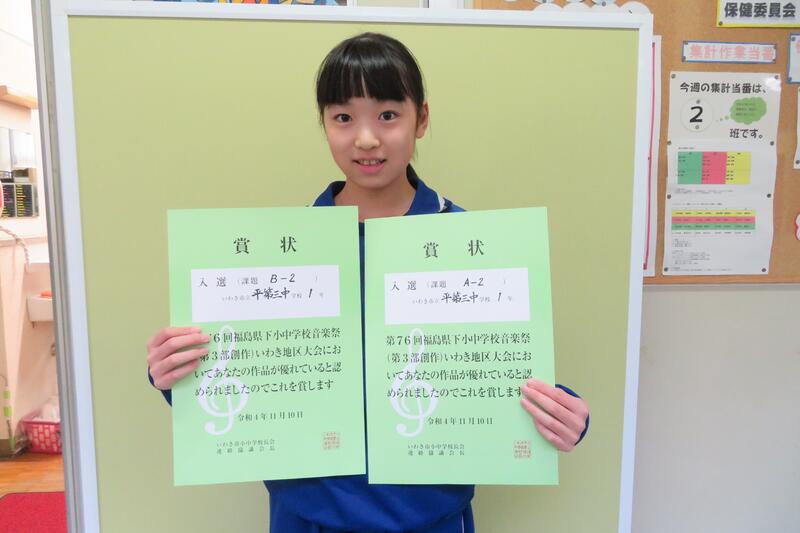 保健委員会
集計作業当番
今週の集計当番は、
2
班です。
賞状
入選 (課題 B-2 )
いわき市立 平第三中学校 1年
76回福島県下小中学校音楽祭
(第3部創作)いわき地区大会にお
いてあなたの作品が優れていると認
められましたのでこれを賞します
令和4年11月10日
いわき市小中学校長会
連絡協議会長
賞状
入選 (課題 A-2 )
いわき市立 平第三中学校 1年
第76回福島県下小中学校音楽祭
(第3部創作)いわき地区大会にお
いてあなたの作品が優れていると認
められましたのでこれを賞します
令和4年11月10日
いわき市小中学校長会
連絡協議会長